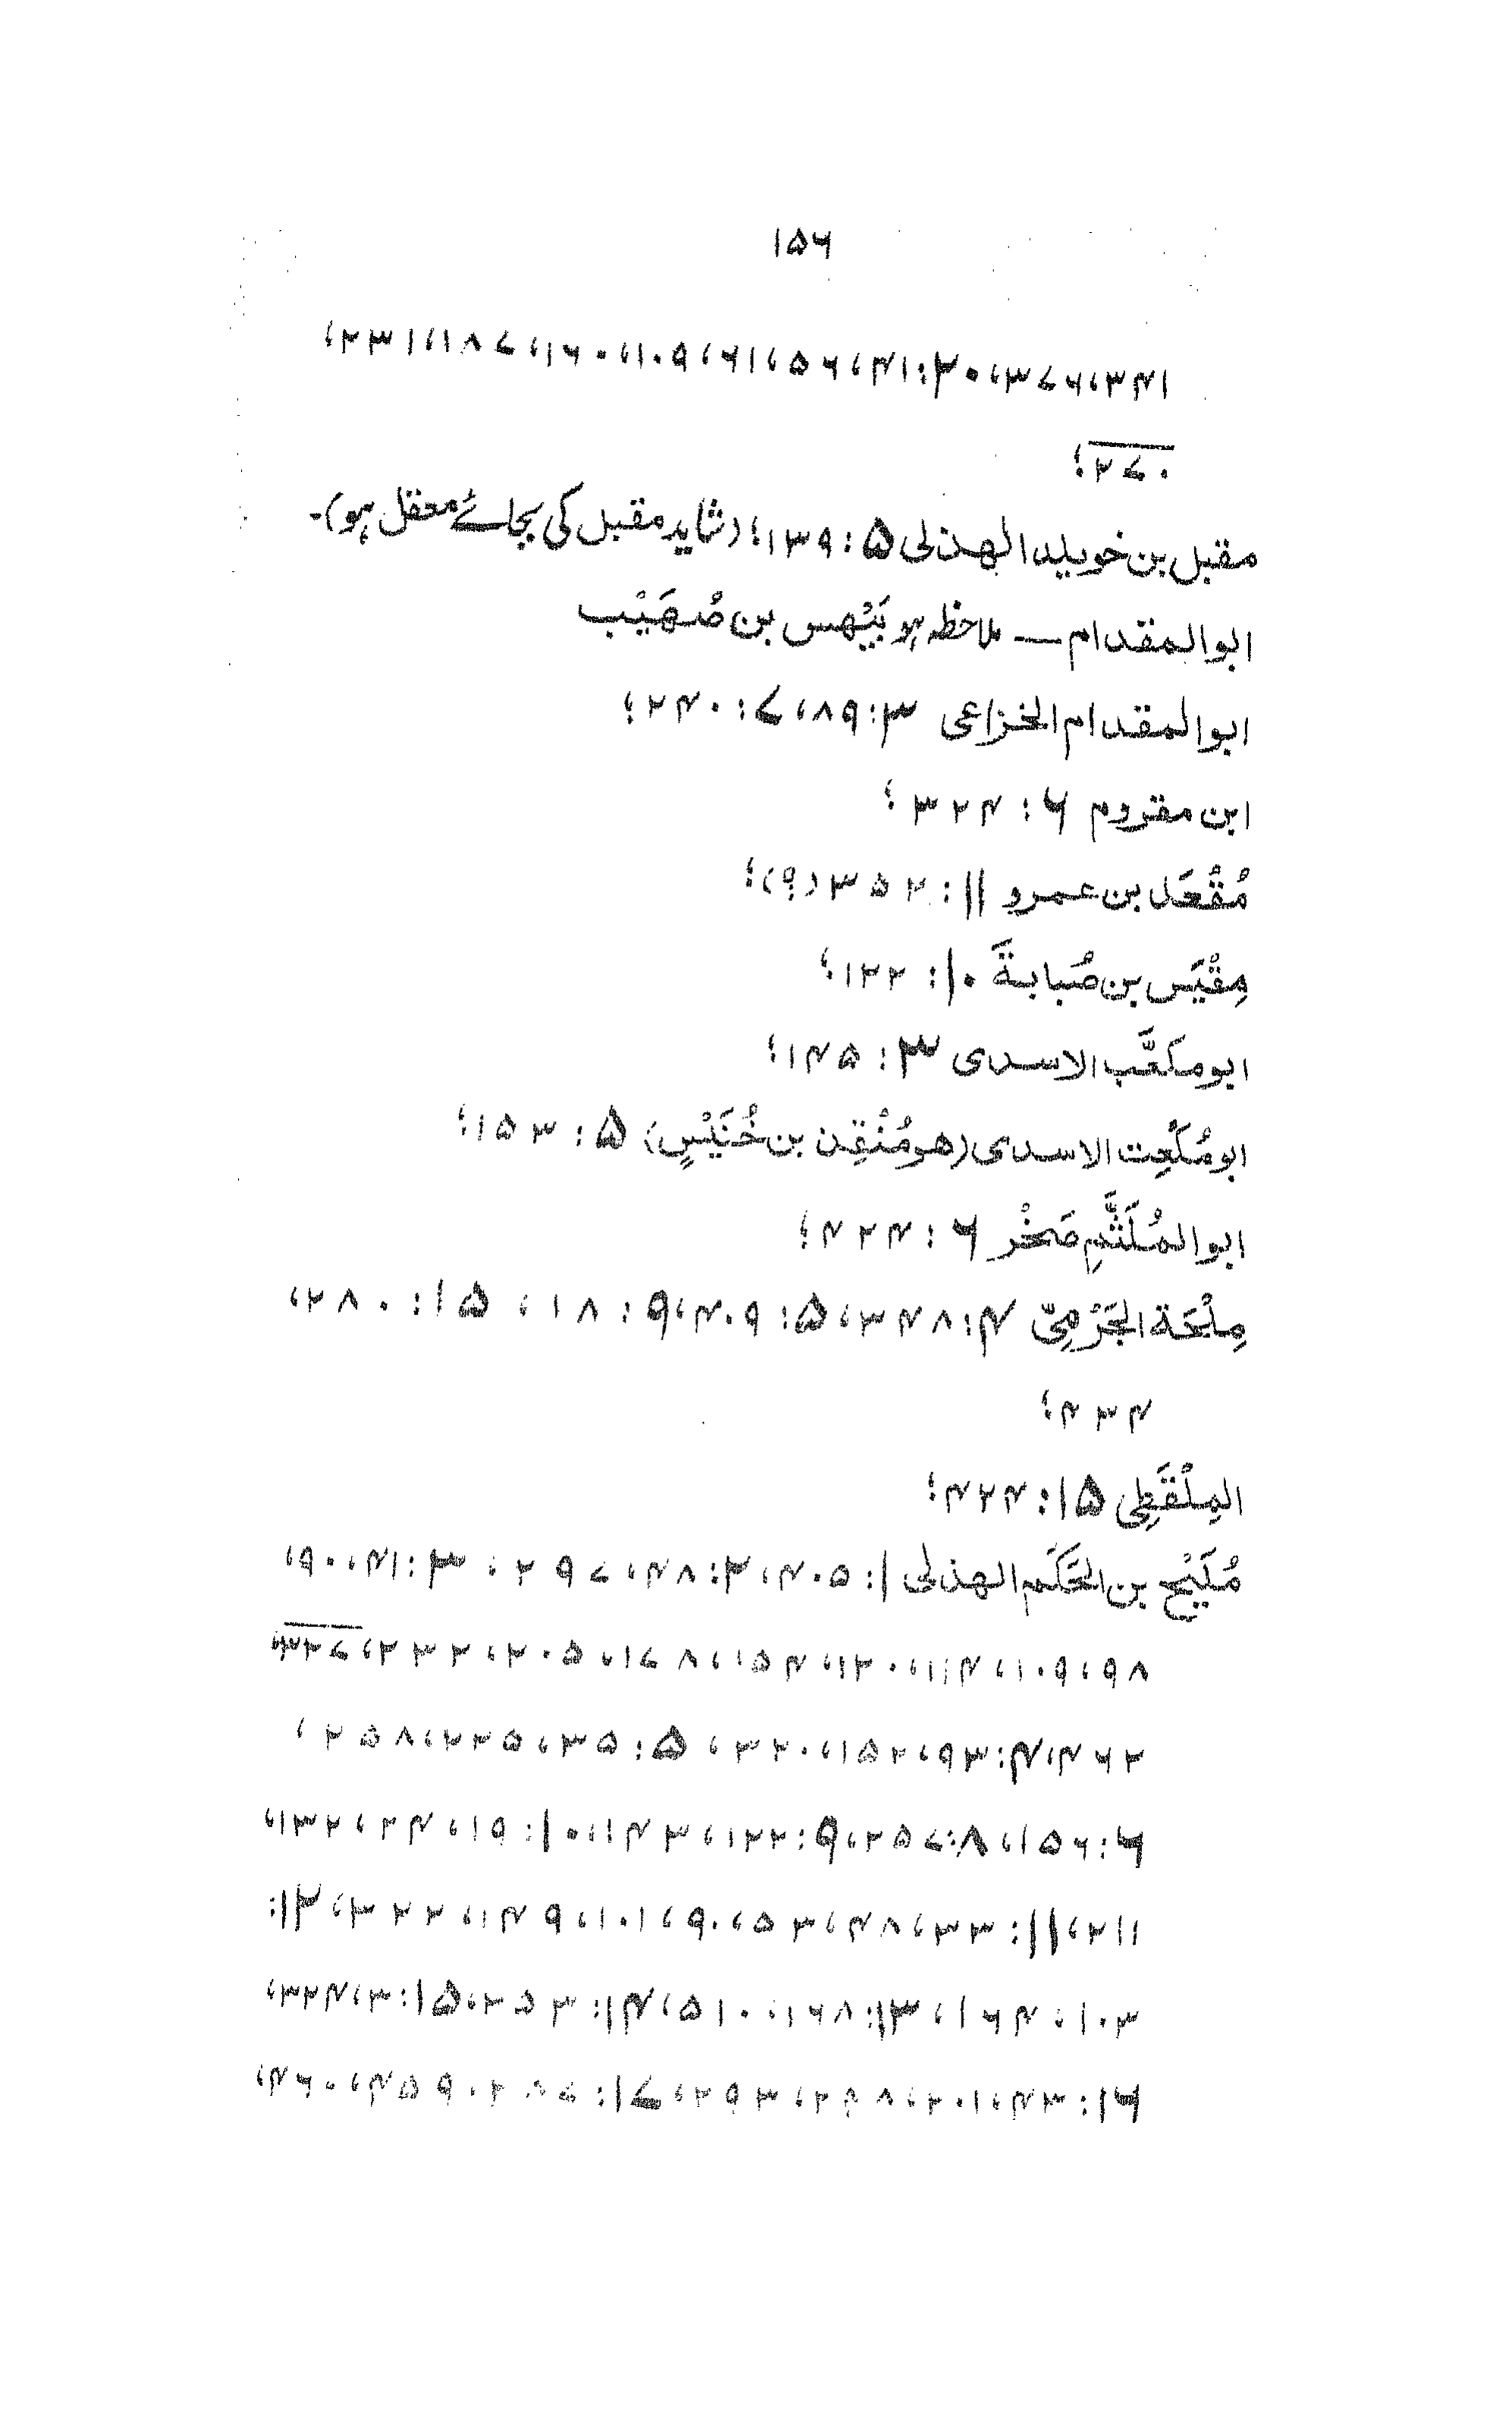 ۱۵۶
۳۴۱، ۳۷۶، ۲۰: ۴۱، ۵۶، ۶۱، ۱۰۹، ۱۶۰، ۱۸۷، ۲۳۱،
۲۷۰؛
مقبل بن خويلد الهذلى ۵: ۱۳۹؛ (شاید مقبل کی بجائے معقل ہو)۔
ابو المقدام — ملاحظہ ہو بَيْهس بن صُهَيْب
ابو المقدام الخزاعى ۳: ۸۹، ۷: ۲۴۰؛
ابن مقروم ۶: ۳۲۴؛
مُقْعَل بن عمرو ۱۱: ۳۵۲ (؟)؛
مِقْيَس بن صُبابةَ ۱۰: ۱۲۲؛
ابو مكعَّب الاسدى ۳: ۱۴۵؛
ابو مُكْعِت الاسدى (هو مُنْقِذ بن خُنَيْسٍ) ۵: ۱۵۳؛
ابو المُلَثَّمِ صَخْر ۶: ۴۲۴؛
مِلْحَة الجَرْمِىّ ۴: ۳۴۸، ۵: ۴۰۹، ۹: ۱۸، ۱۵: ۲۸۰،
۴۳۴؛
المِلْقَطِى ۱۵: ۴۲۴؛
مُلَيْح بن الحَكَم الهذلى ۱: ۴۰۵، ۲: ۴۸، ۲۹۷، ۳: ۴۱، ۹۰،
۹۸، ۱۰۹، ۱۱۴، ۱۲۰، ۱۵۴، ۱۷۸، ۲۰۵، ۲۳۲، ۳۲۷،
۴۶۲، ۴: ۹۳، ۱۵۲، ۳۲۰، ۵: ۳۵، ۲۲۵، ۲۵۸،
۶: ۱۵۶، ۸: ۲۵۷، ۹: ۱۲۲، ۱۴۳، ۱۰: ۱۹، ۲۴، ۱۳۲،
۲۱۱، ۱۱: ۳۳، ۴۸، ۵۳، ۹۰، ۱۰۱، ۱۴۹، ۳۲۲، ۱۲:
۱۰۳، ۱۶۴، ۱۳: ۱۶۸، ۵۱۰، ۱۴: ۲۵۳، ۱۵: ۳، ۳۲۴،
۱۶: ۴۳، ۲۰۱، ۲۴۸، ۲۹۳، ۱۷: ۲۸۷، ۴۵۹، ۴۶۰،